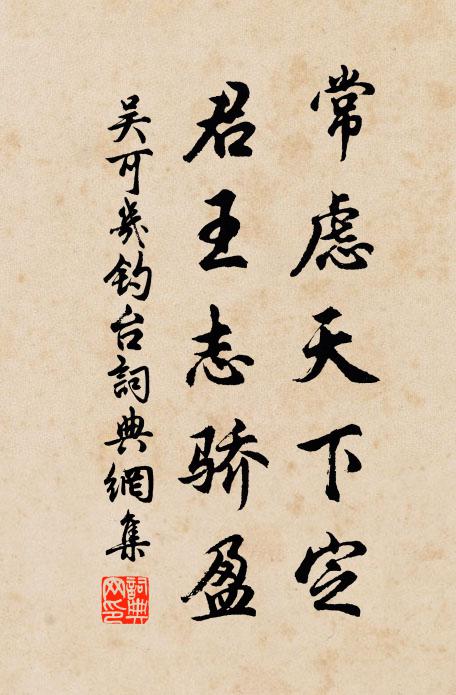 常虑天下定
君王志骄盈
吴可几钓台詞典網集
詞典网印